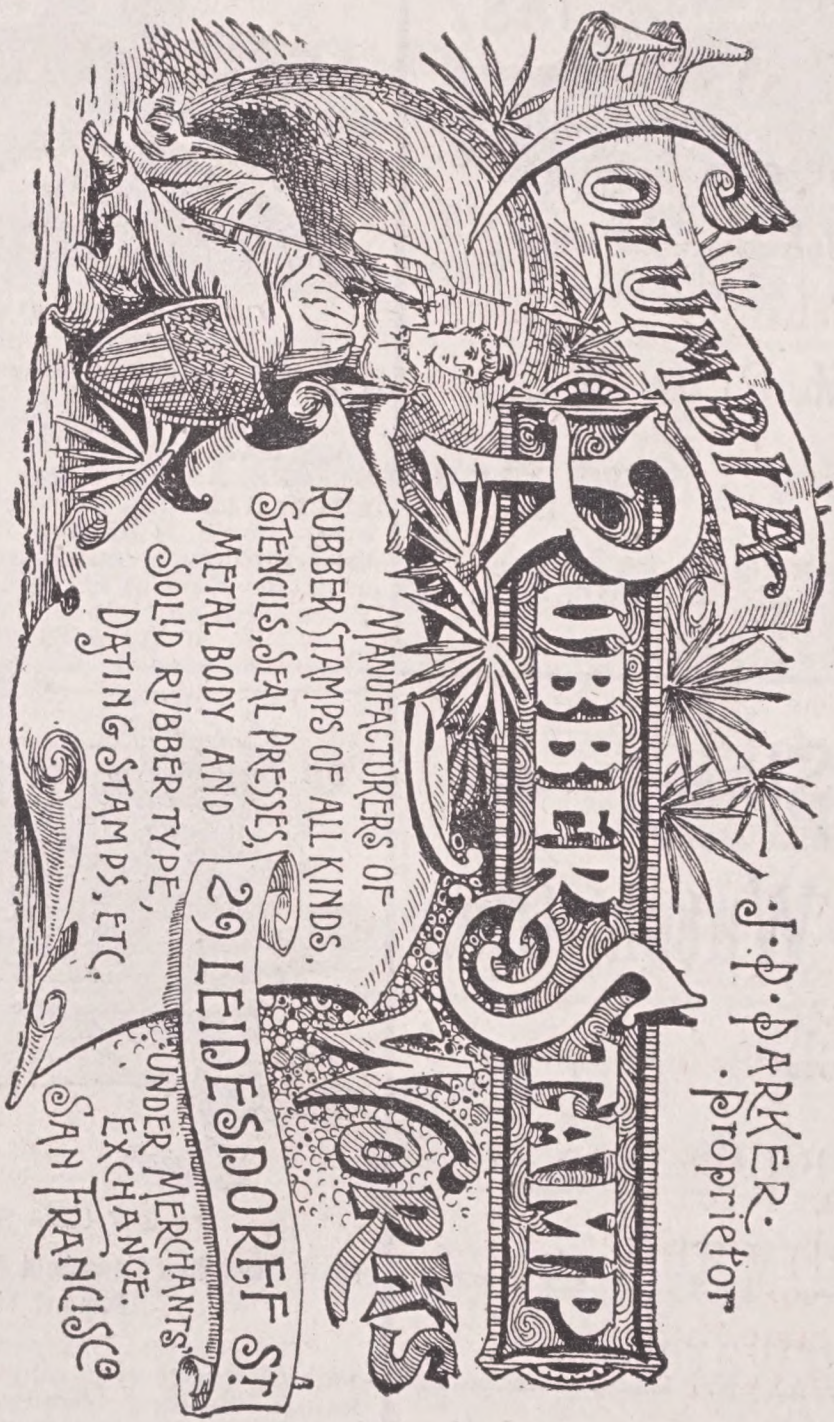 COLUMBIA
J. P. PARKER.
Proprietor
RUBBER STAMP
WORKS
MANUFACTURERS OF
RUBBER STAMPS OF ALL KINDS.
STENCILS, SEAL PRESSES,
METAL BODY AND
SOLID RUBBER TYPE,
DATING STAMPS, ETC.
29 LEIDESDORFF ST
UNDER MERCHANTS'
EXCHANGE,
SAN FRANCISCO